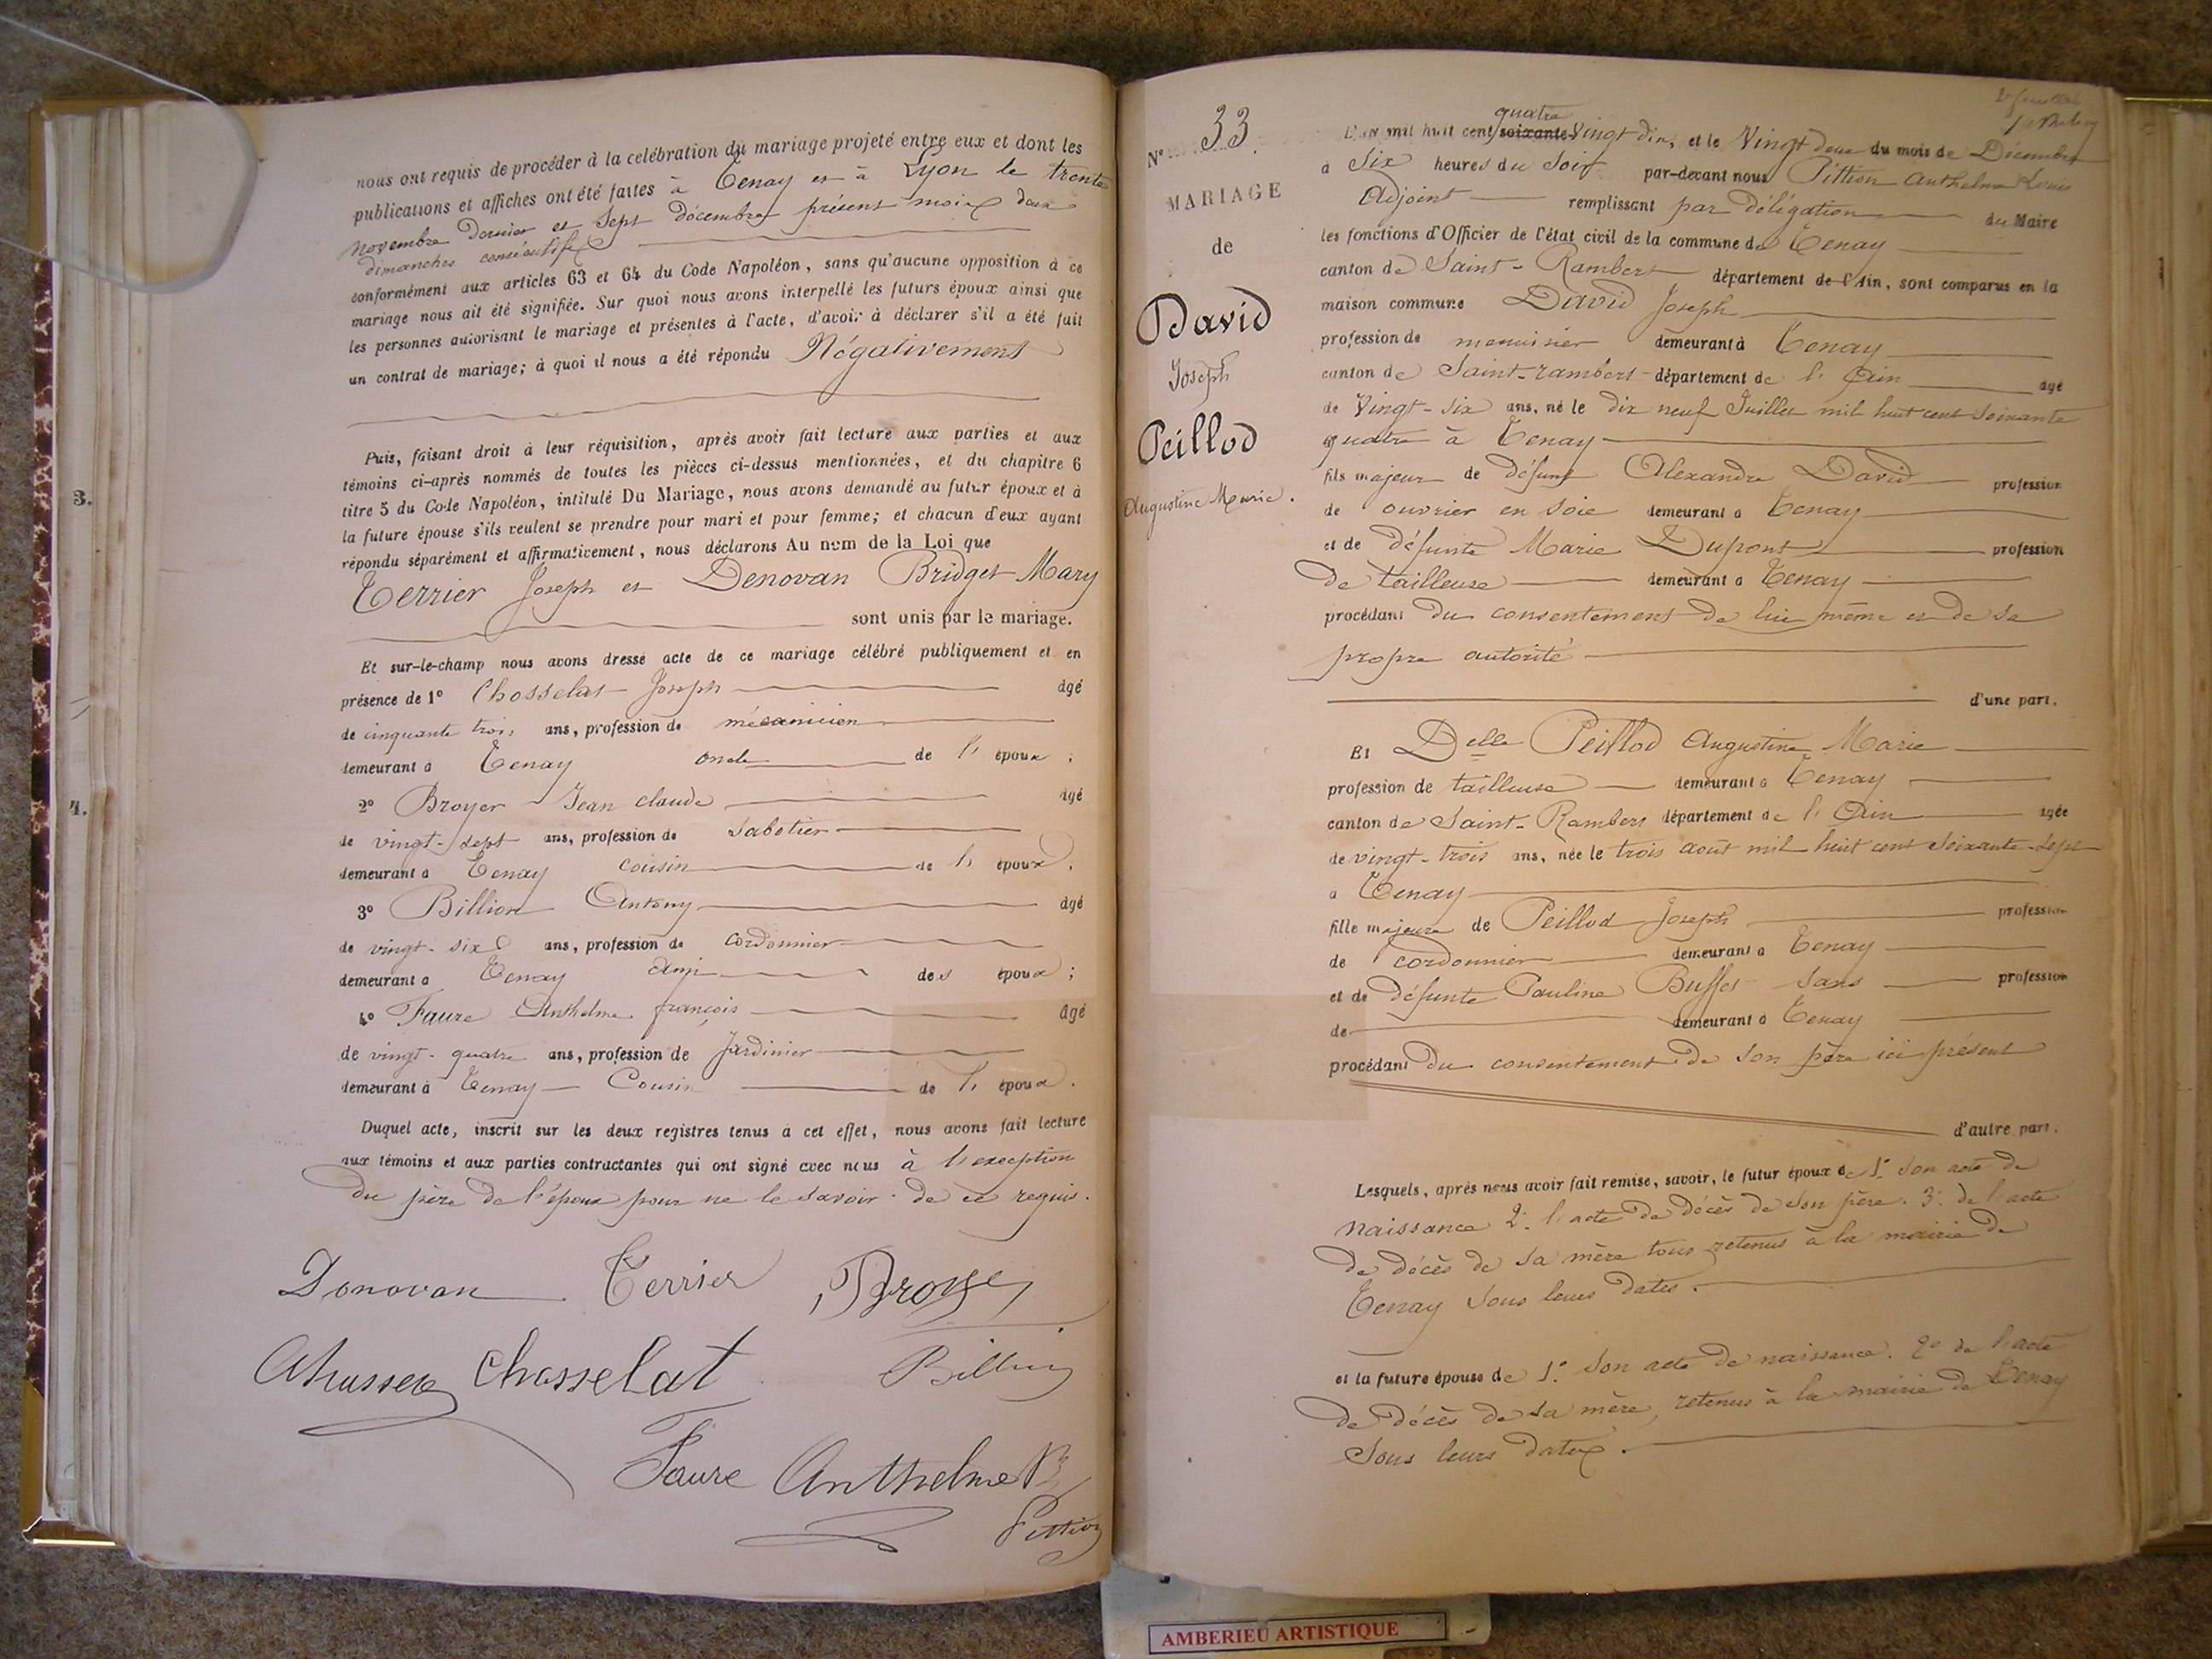 nous ont requis de procéder à la celébration du mariage projeté entre eux et dont les
publications et affiches ont été faites à Tenay et à Lyon le trente
novembre dernier et sept décembre présent mois deux
dimanches consécutifs
conformément aux articles 63 et 64 du Code Napoléon, sans qu'aucune opposition à ce
mariage nous ait été signifiée. Sur quoi nous avons interpellé les futurs époux ainsi que
les personnes autorisant le mariage et présentes à l'acte, d'avoir à déclarer s'il a été fait
un contrat de mariage; à quoi il nous a été répondu Négativement
Puis, faisant droit à leur réquisition, après avoir fait lecture aux parties et aux
témoins ci-après nommés de toutes les pièces ci-dessus mentionnées, et du chapitre 6
titre 5 du Code Napoléon, intitulé Du Mariage, nous avons demandé au futur époux et à
la future épouse s'ils veulent se prendre pour mari et pour femme; et chacun d'eux ayant
répondu séparément et affirmativement, nous déclarons Au nom de la Loi que
Terrier Joseph et Denovan Bridget Mary
sont unis par le mariage.
Et sur-le-champ nous avons dressé acte de ce mariage célébré publiquement et en
présence de 1° Chosselat Joseph âgé
de cinquante trois ans, profession de mécanicien
demeurant à Tenay oncle de l' époux ;
2° Broyer Jean claude âgé
de vingt-sept ans, profession de sabotier
demeurant à Tenay cousin de l' époux ,
3° Billion Antony âgé
de vingt-six ans, profession de cordonnier
demeurant à Tenay ami des époux ;
4° Faure Anthelme françois âgé
de vingt-quatre ans, profession de jardinier
demeurant à Tenay Cousin de l' époux .
Duquel acte, inscrit sur les deux registres tenus à cet effet, nous avons fait lecture
aux témoins et aux parties contractantes qui ont signé avec nous à l'exception
du père de l'époux pour ne le savoir de ce requis.
Donovan Terrier Broyer
Chosselat Billion
Faure Anthelme
Pittion
3.
4.
N° 33
MARIAGE
de
David
Joseph
Peillod
Augustine Marie.
quatre
L'an mil huit cent soixante Vingt dix, et le Vingt deux du mois de Décembre
à Six heures du Soir par-devant nous Pittion Anthelme Louis
Adjoint remplissant par délégation du Maire
les fonctions d'Officier de l'état civil de la commune de Tenay
canton de Saint-Rambert département de l'Ain, sont comparus en la
maison commune David Joseph
profession de menuisier demeurant à Tenay
canton de Saint-rambert département de l'Ain âgé
de Vingt-six ans, né le dix neuf Juillet mil huit cent soixante
quatre à Tenay
fils majeur de défunt Alexandre David profession
de ouvrier en soie demeurant à Tenay
et de défunte Marie Dupont profession
de tailleuse demeurant à Tenay
procédant du consentement de lui même et de sa
propre autorité
d'une part.
Et Delle Peillod Augustine Marie
profession de tailleuse demeurant à Tenay
canton de Saint-Rambert département de l'Ain âgée
de vingt-trois ans, née le trois août mil huit cent soixante-sept
à Tenay
fille majeure de Peillod Joseph profession
de cordonnier demeurant à Tenay
et de défunte Pauline Buffet sans profession
de demeurant à Tenay
procédant du consentement de son père ici présent
d'autre part.
Lesquels, après nous avoir fait remise, savoir, le futur époux de 1° son acte de
naissance 2° l'acte de décès de son père. 3° de l'acte
de décès de sa mère tous retenus à la mairie de
Tenay sous leurs dates.
et la future épouse de 1° son acte de naissance. 2° de l'acte
de décès de sa mère, retenus à la mairie de Tenay
sous leurs dates.
AMBERIEU ARTISTIQUE